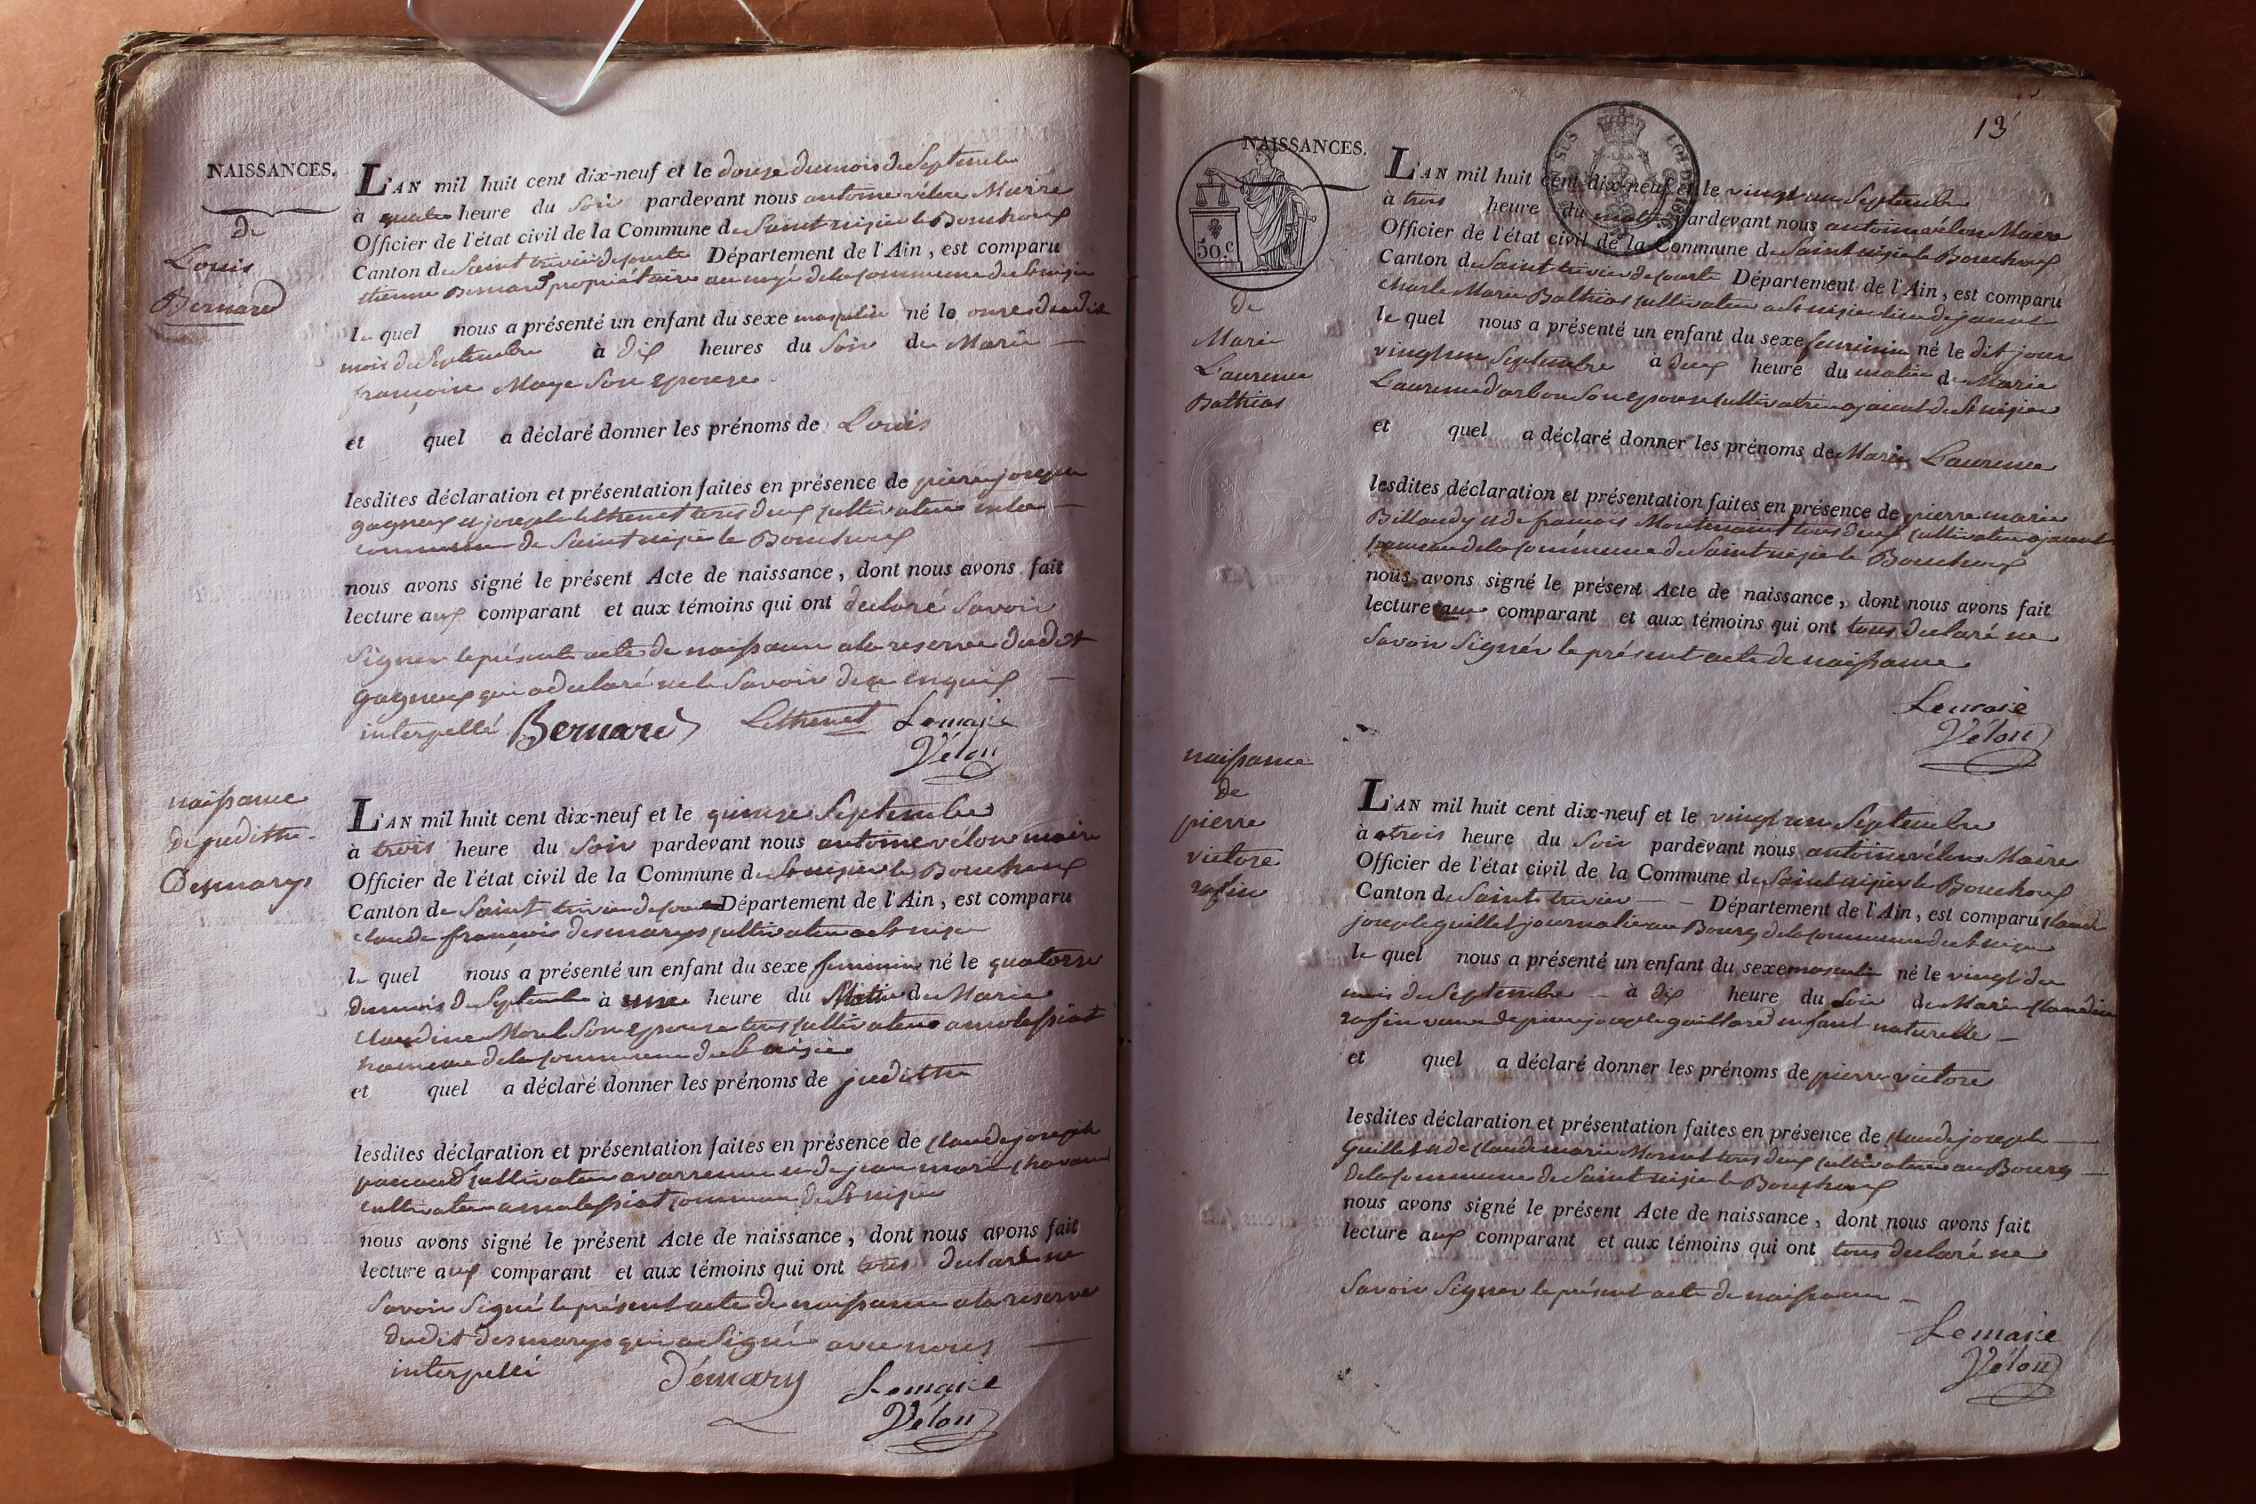 NAISSANCES.
de
Louis
Bernard
L'AN mil huit cent dix-neuf et le douze du mois de Septembre
à quatre heure du Soir pardevant nous antoine vélon Maire
Officier de l'état civil de la Commune de Saint nizier le Bouchoux
Canton de Saint trivier de courte Département de l'Ain, est comparu
étienne Bernard propriétaire au mzé de la commune de St nizier
le quel nous a présenté un enfant du sexe masculin né le onze dudit
mois de Septembre à dix heures du Soir de Marie
françoise Maye Son epouse
et quel a déclaré donner les prénoms de Louis
lesdites déclaration et présentation faites en présence de pierre joseph
gagneux et joseph Lethenet tous deux cultivateurs en la
commune de Saint nizier le Bouchoux
nous avons signé le présent Acte de naissance, dont nous avons fait
lecture aux comparant et aux témoins qui ont declaré Savoir
Signer le présent acte de naissance a la reserve dudit
gagneux qui a declaré ne le Savoir de ce enquis
interpellé Bernard Lethenet Le maire
Vélon
naissance
de juditthe
Desmarys
L'AN mil huit cent dix-neuf et le quinze Septembre
à trois heure du Soir pardevant nous antoine vélon maire
Officier de l'état civil de la Commune de St nizier le Bouchoux
Canton de Saint trivier de cour Département de l'Ain, est comparu
claude françois desmarys cultivateur a St nizier
le quel nous a présenté un enfant du sexe feminin né le quatorze
du mois de Septembre à une heure du Matin de Marie
claudine Morel Son epouse tous cultivateurs a molissiat
hameau de la commune de St nizier
et quel a déclaré donner les prénoms de juditthe
lesdites déclaration et présentation faites en présence de claude joseph
pacoud cultivateur a varrenne et de jean marie chavanel
cultivateur a molessiat commune de St nizier
nous avons signé le présent Acte de naissance, dont nous avons fait
lecture aux comparant et aux témoins qui ont tous declaré ne
Savoir Signé le présent acte de naissance a la reserve
dudit desmarys qui a Signé avec nous
interpellé Démary Le maire
Vélon
13
NAISSANCES.
50.c
de
Marie
Laurence
Bathias
L'AN mil huit cent dix-neuf et le vingt un Septembre
à trois heure du matin pardevant nous antoine vélon Maire
Officier de l'état civil de la Commune de Saint nizier le Bouchoux
Canton de Saint trivier de courte Département de l'Ain, est comparu
charle Marie Bathias cultivateur a St nizier lieu de jarent
le quel nous a présenté un enfant du sexe feminin né le dit jour
vingt un Septembre à deux heure du matin de Marie
Laurence darbon Son epouse cultivatrice a jarent de St nizier
et quel a déclaré donner les prénoms de Marie Laurence
lesdites déclaration et présentation faites en présence de pierre marie
Billoudy et de françois Montenaint tous deux cultivateurs a jarent
hameau de la commune de Saint nizier le Bouchoux
nous avons signé le présent Acte de naissance, dont nous avons fait
lecture aux comparant et aux témoins qui ont tous declaré ne
Savoir Signér le présent acte de naissance
Le maire
Vélon
naissance
de
pierre
victore
rafin
L'AN mil huit cent dix-neuf et le vingt un Septembre
à trois heure du Soir pardevant nous antoine vélon Maire
Officier de l'état civil de la Commune de Saint nizier le Bouchoux
Canton de Saint trivier Département de l'Ain, est comparu claude
joseph guillet journalier au Bourg de la commune de St nizier
le quel nous a présenté un enfant du sexe masculin né le vingt du
mois de Septembre à dix heure du Soir de Marie claudine
rafin veuve de pierre joseph gaillard enfant naturelle
et quel a déclaré donner les prénoms de pierre victore
lesdites déclaration et présentation faites en présence de claude joseph
Guillet et de claude marie Moriut tous deux cultivateurs au Bourg
de la commune de Saint nizier le Bouchoux
nous avons signé le présent Acte de naissance, dont nous avons fait
lecture aux comparant et aux témoins qui ont tous declaré ne
Savoir Signer le présent acte de naissance
Le maire
Vélon